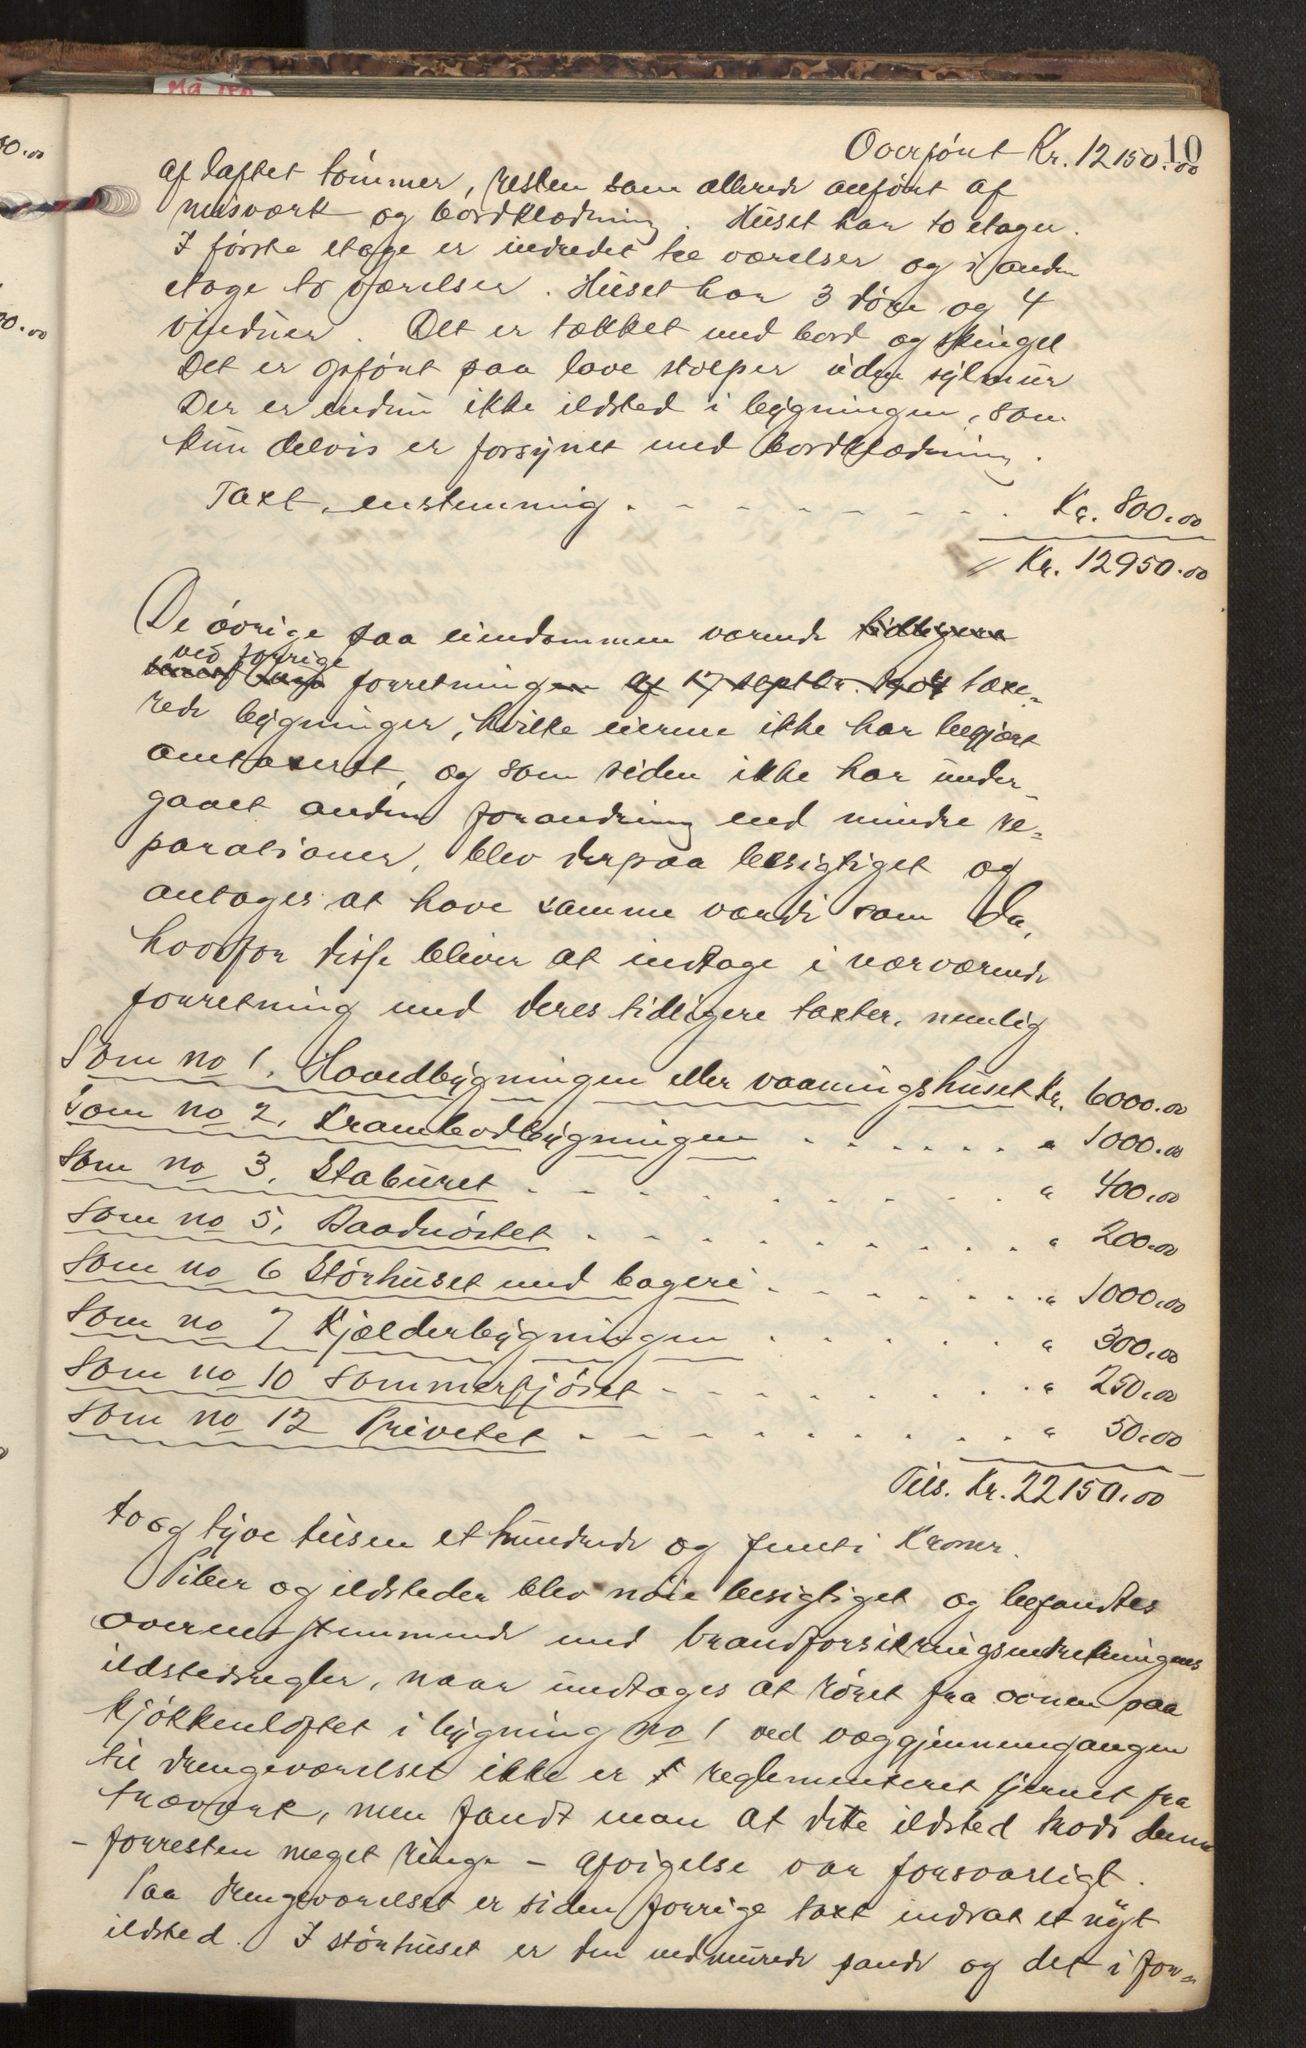 10
Overført Kr. 12150.00
af laftet tømmer, resten som allerede anført af
reisverk og bordklædning. Huset har to etager.
I første etage er indredet tre værelser og i anden
etage to værelser. Huset har 3 døre og 4
vinduer. Det er tækket med bord og skingel
Det er opført paa lave stolper uden sylmur
Der er endnu ikke ildsted i bygningen, som
kun delvis er forsynet med bordklædning.
Taxt, enstemmig . . . . . . . . . Kr. 800.00
Kr. 12950.00
De øvrige paa eiendommen værende tidligere
ved forrige
forretningen af 17 septbr. 1904 taxe-
rede bygninger, hvilke eierne ikke har begjært
omtaxeret, og som siden ikke har under-
gaaet anden forandring end mindre re-
parationer, blev derpaa besigtiget og
antages at have samme værdi som da,
hvorfor disse bliver at indtage i nærværende
forretning med deres tidligere taxter, nemlig
Som no 1. Hovedbygningen eller vaaningshuset Kr. 6000.00
Som no 2. Krambodbygningen . . . . . . " 1000.00
Som no 3. Staburet . . . . . . . . . . . " 400.00
Som no 5. Baadnøstet . . . . . . . . . . " 200.00
Som no 6 Størhuset med bageri . . . . . . . " 1000.00
Som no 7 Kjælderbygningen . . . . . . " 300.00
Som no 10 Sommerfjøset . . . . . . . . . " 250.00
Som no 12 Privetet . . . . . . . . . . " 50.00
Tils. Kr. 22150.00
to og tyve tusen et hundrede og femti Kroner.
Piber og ildsteder blev nøie besigtiget og befandtes
overensstemmende med brandforsikringsindretningens
ildstedsregler, naar undtages at røret fra ovnen paa
kjøkkenloftet i bygning no 1 ved væggjennemgangen
til drengeværelset ikke er reglementeret fjernet fra
træværk, men fandt man at dette ildsted trods denne
- forresten meget ringe - afvigelse var forsvarligt.
Paa drengeværelset er siden forrige taxt indsat et nyt
ildsted. I størhuset er den indmurede pande og det i for-